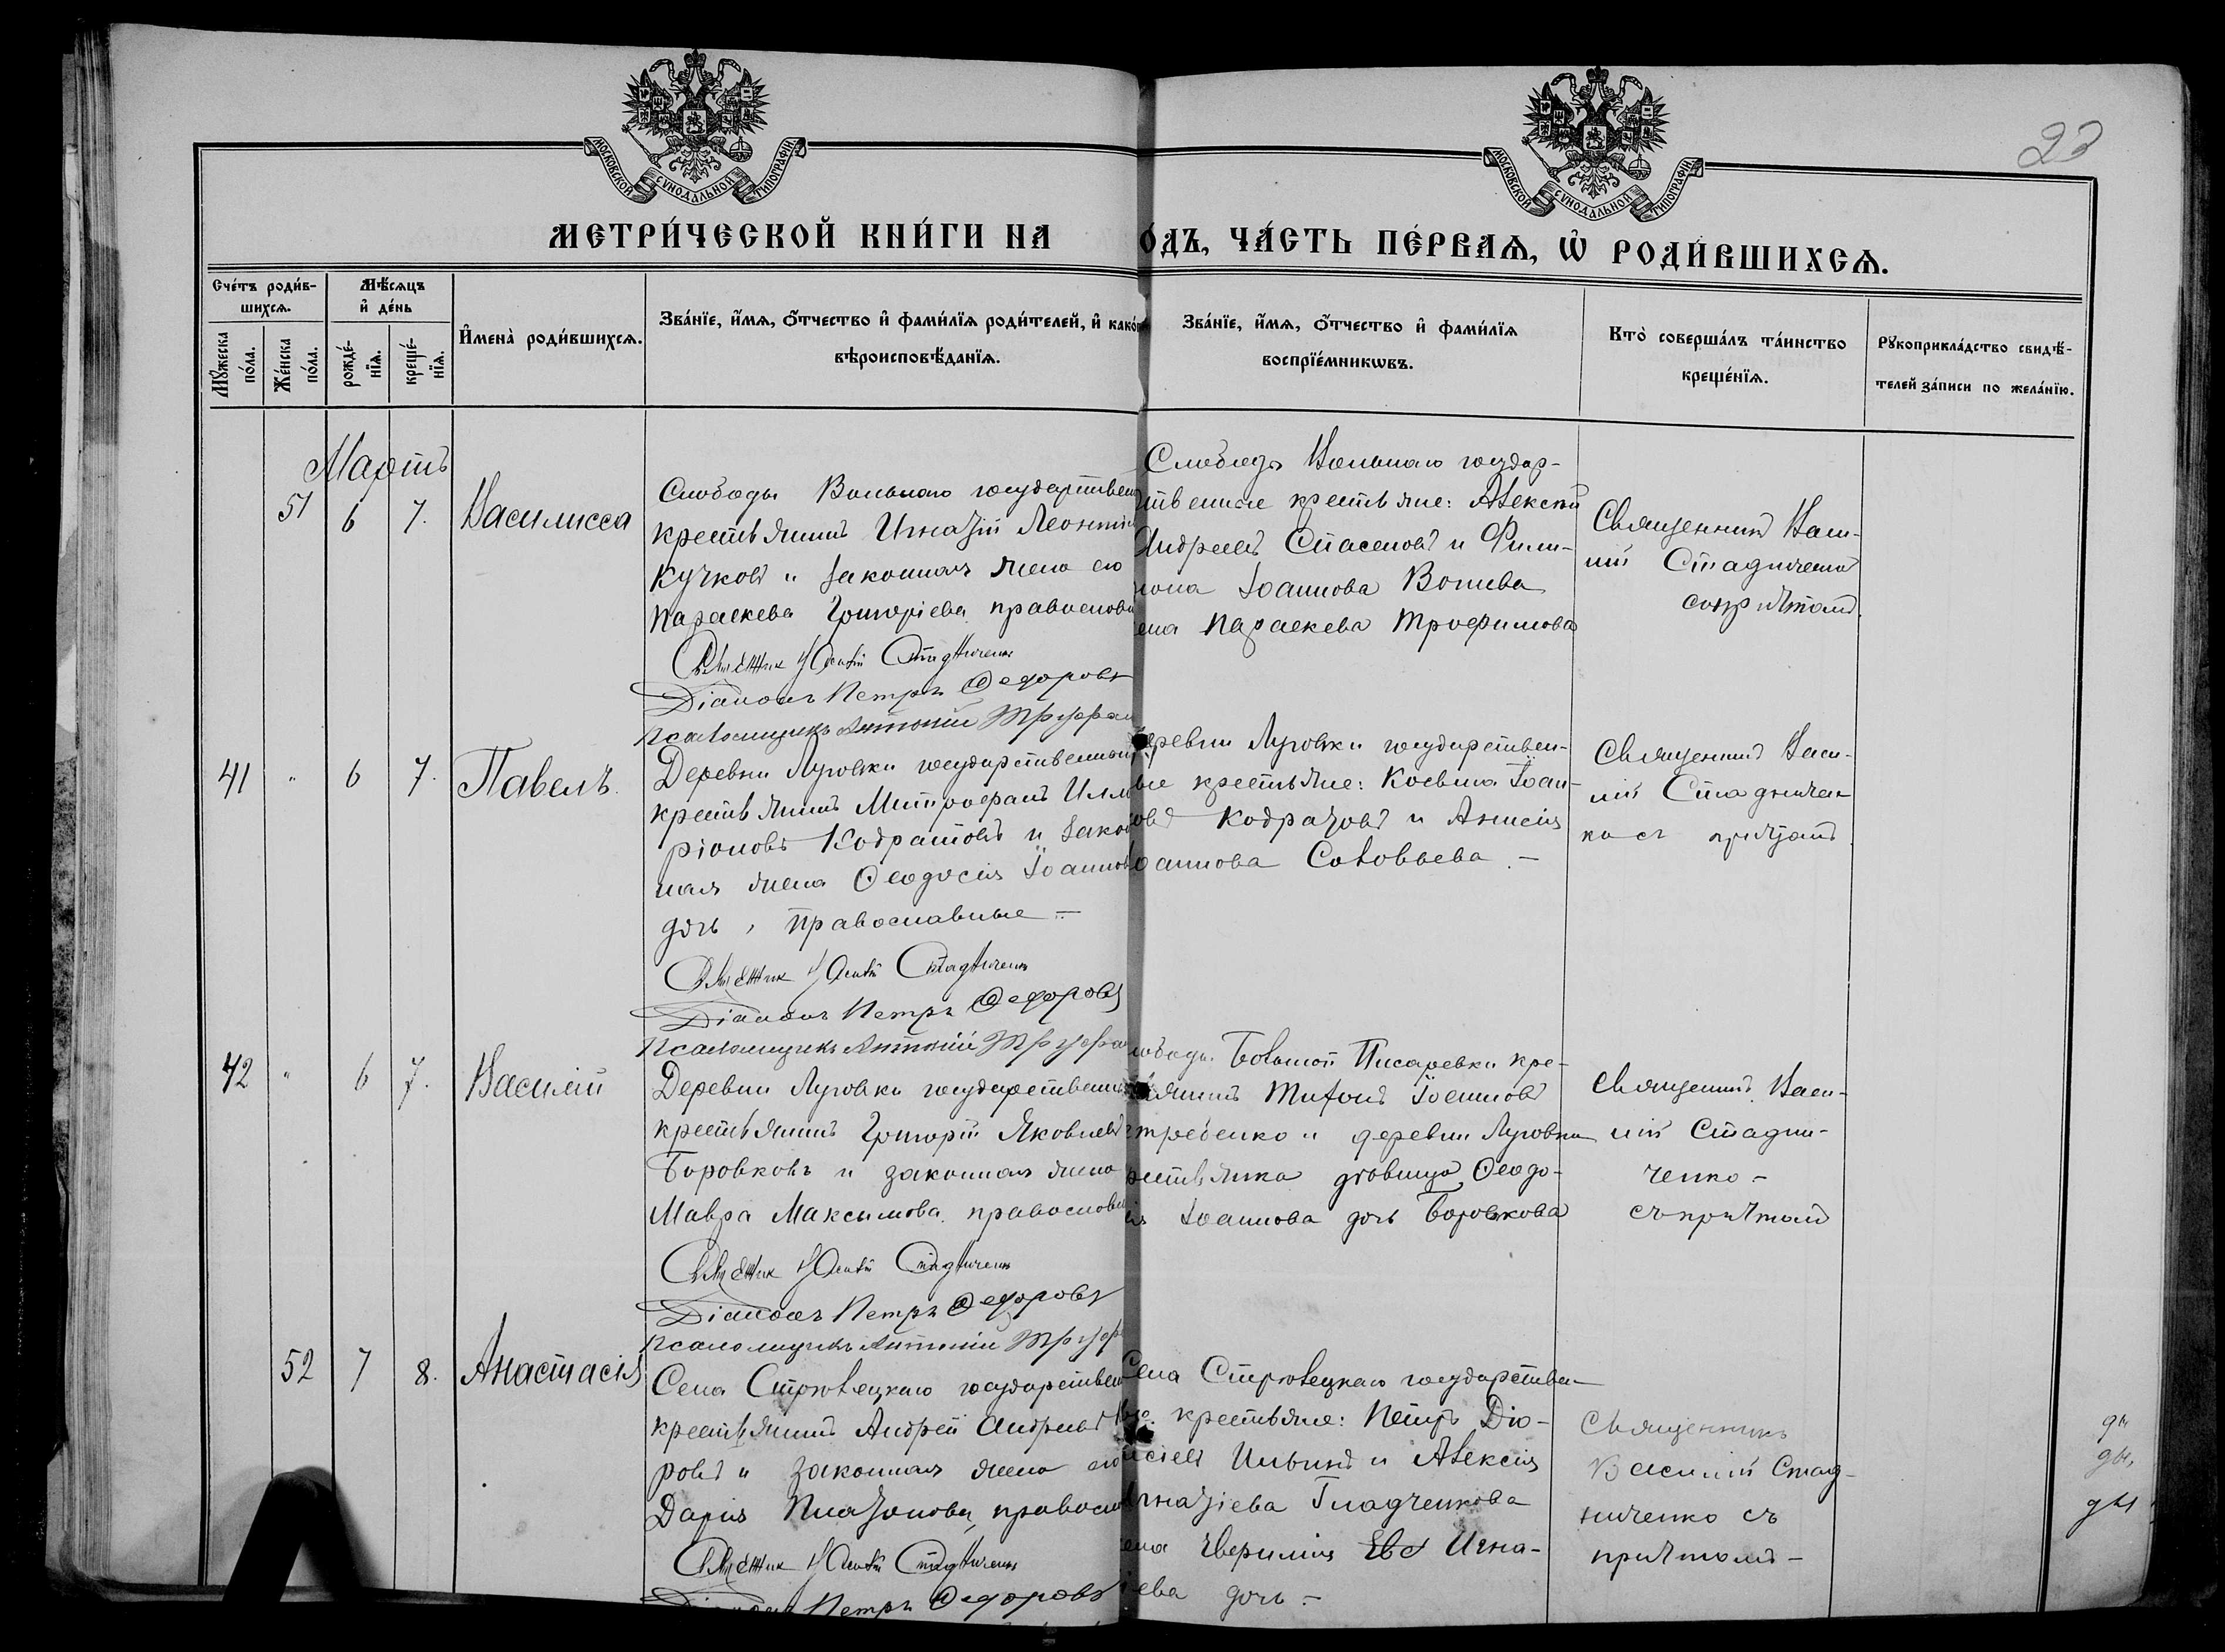 МОСКОВСКОЙ СѴНОДАЛЬНОЙ ТИПОГРАФІИ
МОСКОВСКОЙ СѴНОДАЛЬНОЙ ТИПОГРАФІИ
23
МЕТРИ́ЧЕСКОЙ КНИ́ГИ НА
О́ДЪ, ЧА́СТЬ ПЕ́РВАЯ, Ѡ РОДИ́ВШИХСЯ.
Сче́тъ роди́в-
шихся.
Му́жеска
по́ла.
Же́нска
по́ла.
Мѣ́сяцъ
и҆ де́нь
рожде́-
нїя.
креще́-
нїя.
И҆мена̀ роди́вшихся.
Зва́нїе, и҆́мя, ѻ҆́тчество и҆ фами́лїя роди́телей, и҆ како́
вѣроисповѣ́данїя.
Зва́нїе, и҆́мя, ѻ҆́тчество и҆ фами́лїя
воспрїе́мникωвъ.
Кто̀ соверша́лъ та́инство
креще́нїя.
Рꙋкоприкла́дство свидѣ́-
телей за́писи по жела́нїю.
Мартъ
51 6 7. Василисса
Слободы Вольнаго государствен
крестьянинъ Игнатій Леонтіе
Кучковъ и законная жена его
Параскева Григоріева, православ
Священник Василій Стадниченко
Діаконъ Петръ Ѳедоровъ
Псаломщикъ Антоній Труфан
Слободы Вольнаго государ-
ственные крестьяне: Алексѣй
Андреевъ Спасеновъ и Фили-
мона Іоаннова
ена Параскева Трофимова
Священникъ Васи-
лій Стадниченко
съ причтомъ.
41 " 6 7. Павелъ.
Деревни Луговки государственный
крестьянинъ Митрофанъ Илла
ріоновъ Кодратовъ и закон
ная жена Ѳеодосія Іоаннов
дочь, православные —
Священник Василій Стадниченко
Діаконъ Петръ Ѳедоровъ
Псаломщикъ Антоній Труфан
еревни Луговки государствен-
ые крестьяне: Косьма Іоан-
овъ Кодратовъ и Анисія
оаннова Соловьева. —
Священникъ Васи-
лій Стадничен
ко съ причтомъ.
42 " 6 7. Василій
Деревни Луговки государственный
крестьянинъ Григорій Яковлевъ
Боровковъ и законная жена
Мавра Максимова, православн
Священник Василій Стадниченко
Діаконъ Петръ Ѳедоровъ
Псаломщикъ Антоній Труф
лободы Большой Писаревки кре-
янинъ Тихонъ Іоанновъ
стребенко и деревни Луговки
рестьянка дѣвица Ѳеодо-
ія Іоаннова дочь Боровкова
Священникъ Васи-
лій Стадни-
ченко —
съ причтомъ
52 7 8. Анастасія
Села Стрѣлецкаго государствен
крестьянинъ Андрей Андреевъ
ровъ и законная жена его
Дарія Платонова, правосл
Священник Василій Стадниченко
Діаконъ Петръ Ѳедоровъ
Села Стрѣлецкаго государствен
ые крестьяне: Петръ Діо-
нисіевъ Ильинъ и Алексія
Игнатіева Гладченкова
ена Игна-
іева дочь. —
Священникъ
Василій Стад-
ниченко съ
причтомъ —